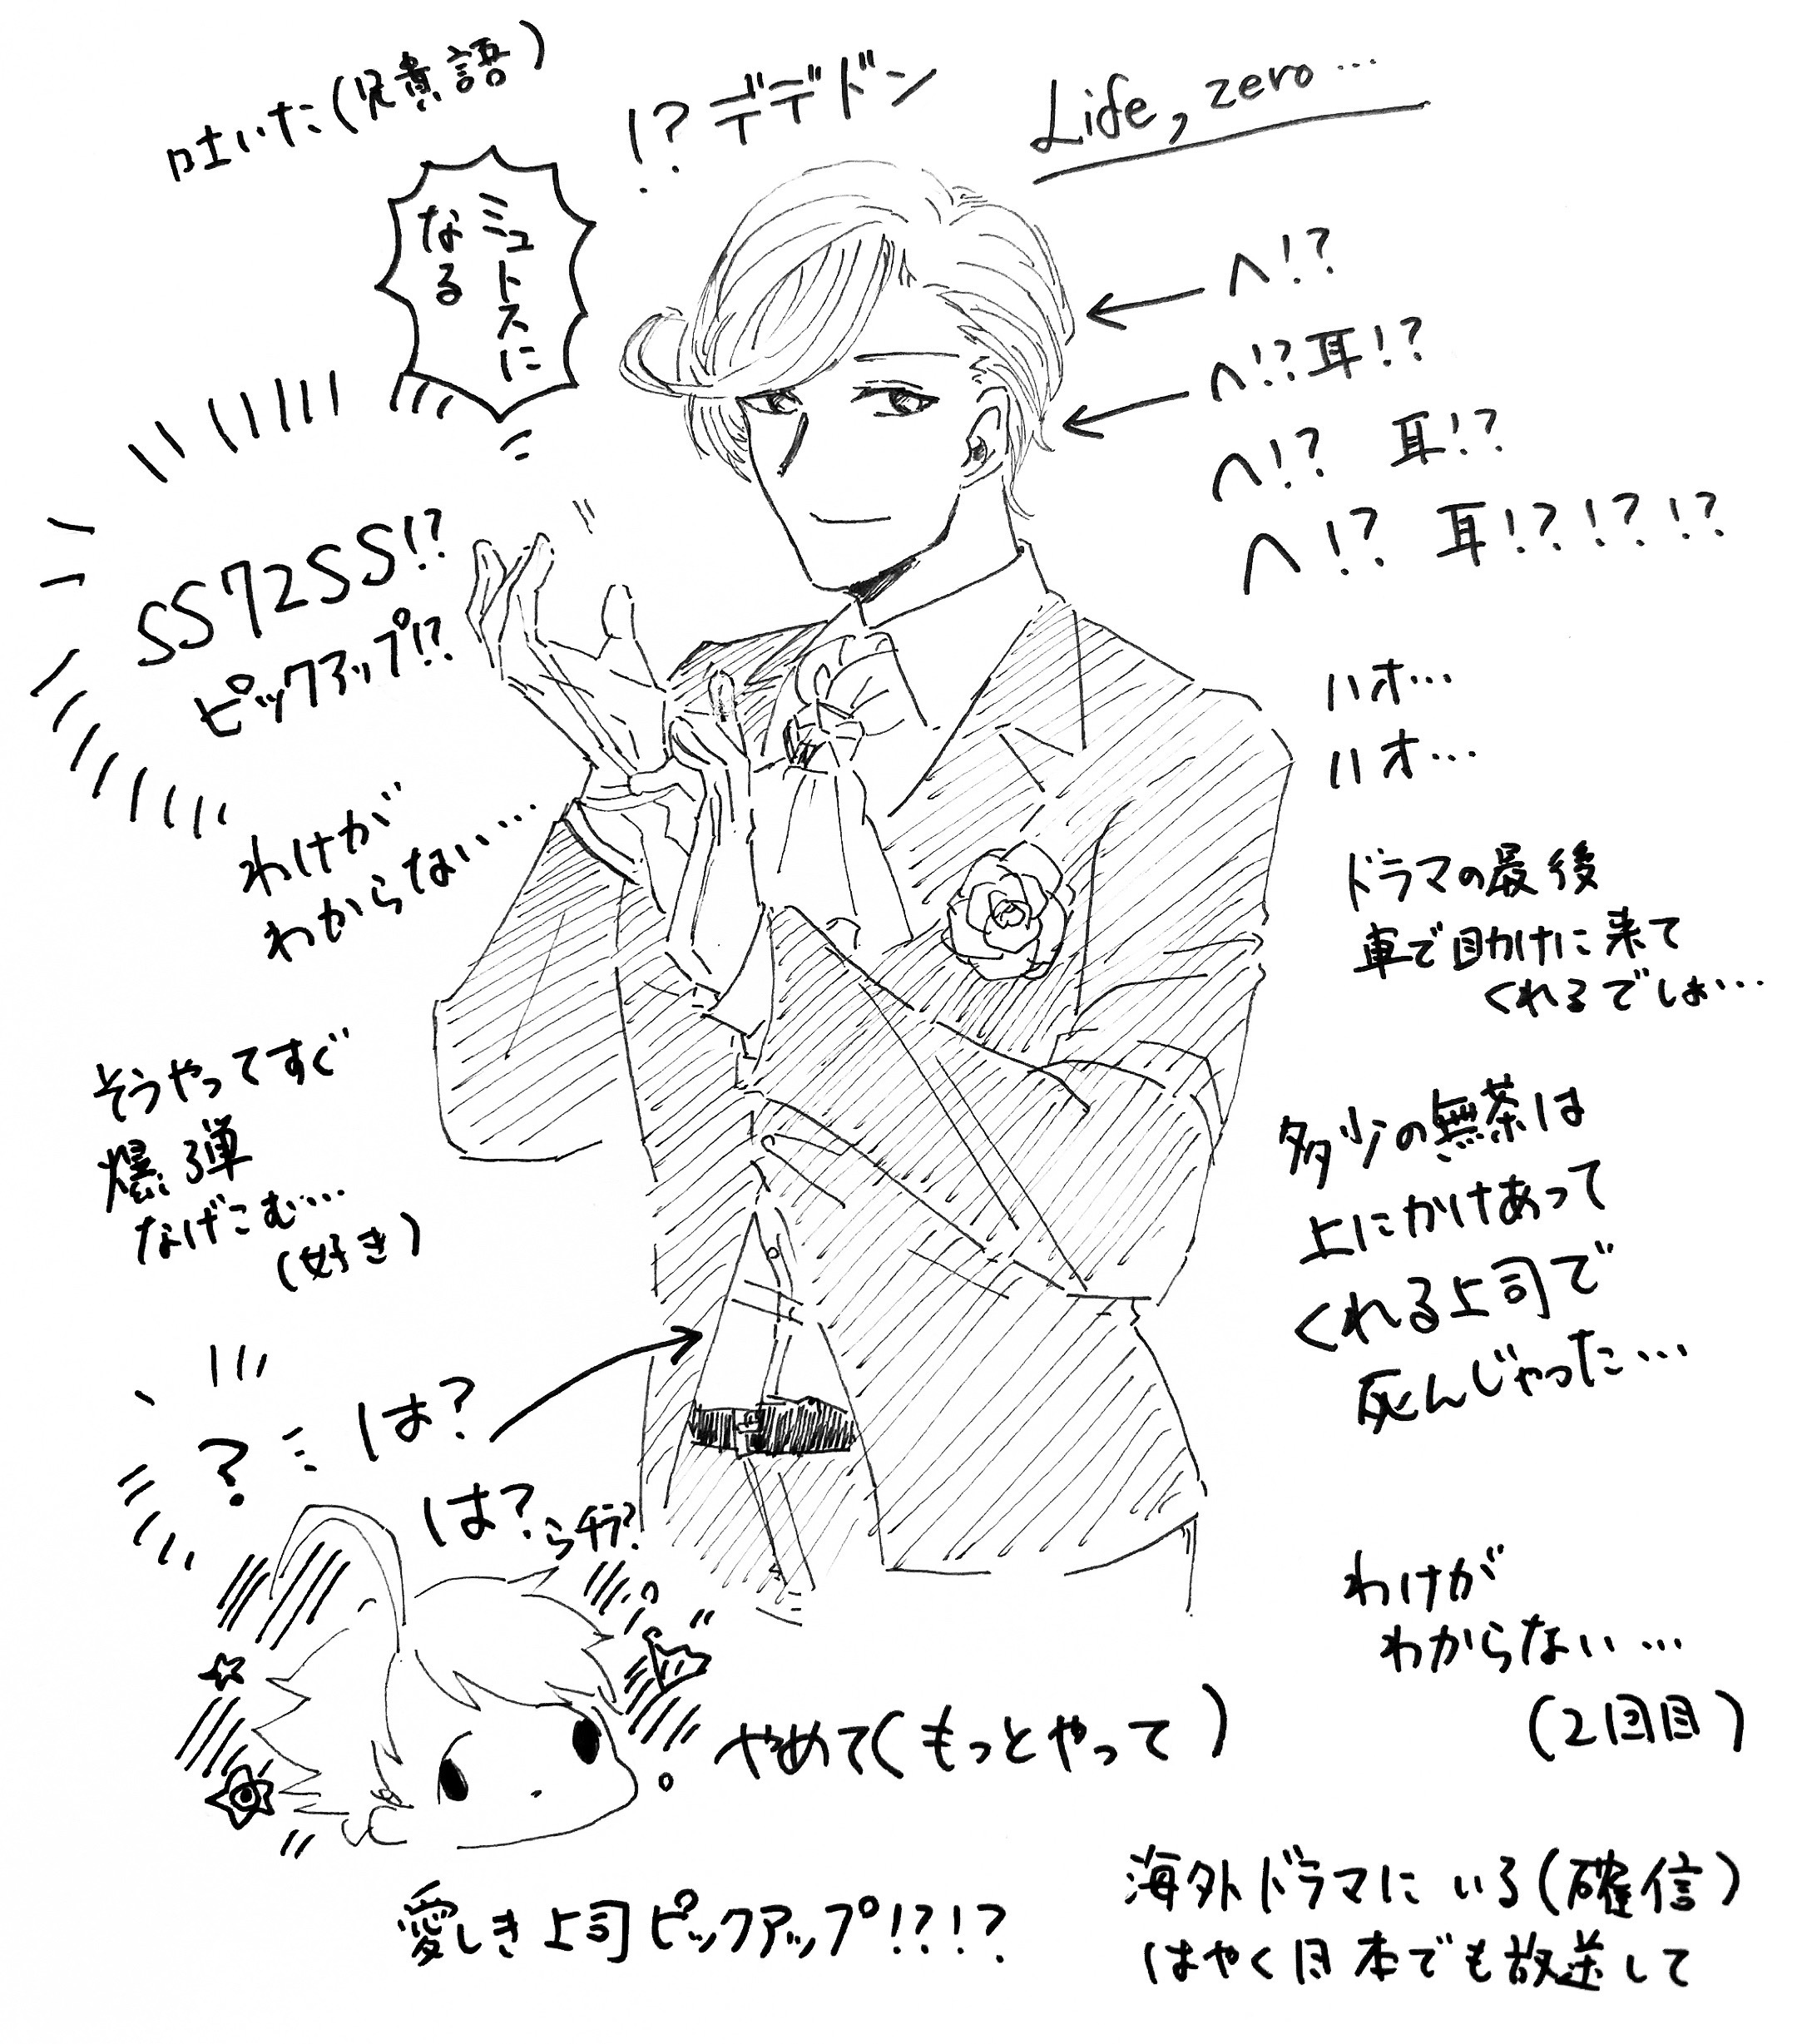 吐いた(兄貴語)
!?デデドン
Life, zero…
ミュトスに
なる
へ!?
へ!?耳!?
へ!? 耳!?
へ!? 耳!?!?!?
SS72SS!?
ピックアップ!?
わけが
わからない…
ハオ…
ハオ…
ドラマの最後
車で助けに来て
くれるでしょ…
そうやってすぐ
爆弾
なげこむ…
(好き)
多少の無茶は
上にかけあって
くれる上司で
死んじゃった…
?
は?
は?
わけが
わからない…
(2回目)
やめて(もっとやって)
愛しき上司ピックアップ!?!?
海外ドラマにいる(確信)
はやく日本でも放送して